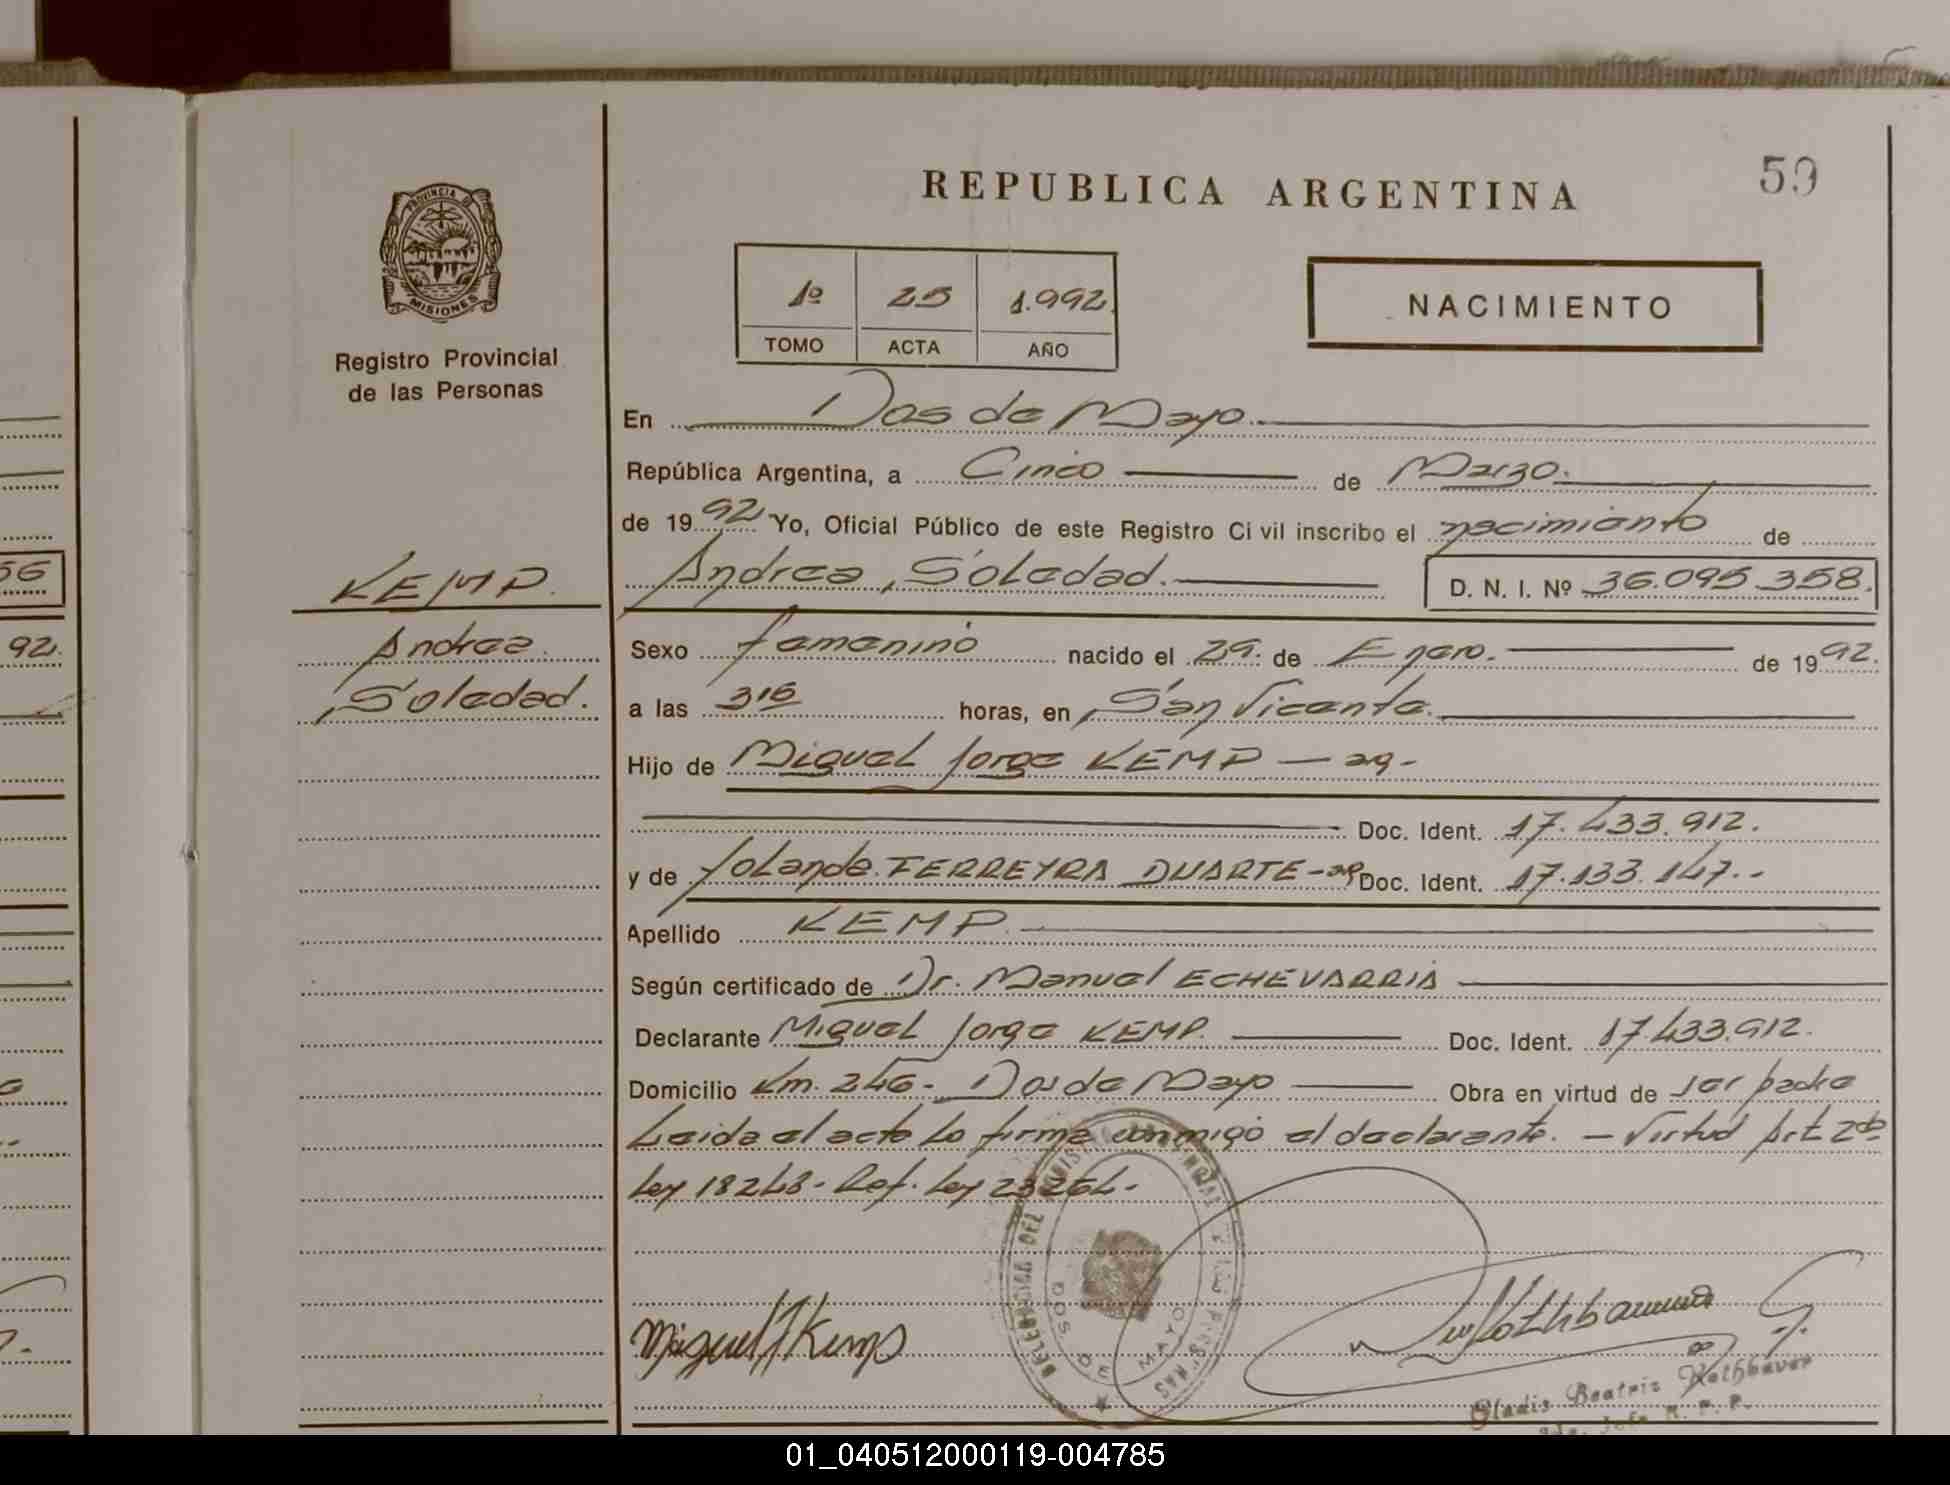 59
REPUBLICA ARGENTINA
PROVINCIA D
MISIONES
Registro Provincial
de las Personas
1º 25 1.992.
TOMO ACTA AÑO
NACIMIENTO
En Dos de Mayo.
República Argentina, a Cinco de Marzo.
de 1992 Yo, Oficial Público de este Registro Ci vil inscribo el nacimiento de
56
KEMP.
Andrea, Soledad. D. N. I. Nº 36.095.358.
92.
Andrea
Soledad.
Sexo femenino nacido el 29. de Enero. de 1992.
a las 315 horas, en San Vicente.
Hijo de Miguel Jorge KEMP — ag-
Doc. Ident. 17.433.912.
y de Yolanda FERREYRA DUARTE - ag Doc. Ident. 17.133.147.-
Apellido KEMP
Según certificado de Dr. Manuel ECHEVARRIA
Declarante Miguel Jorge KEMP. Doc. Ident. 17.433.912.
Domicilio Km. 246 - Dos de Mayo Obra en virtud de ser padre
Leida el acta la firma conmigo el declarante. — Virtud Art 2do
Ley 18248 - Ref. Ley 23264.-
DELEGACION DEL REGISTRO PROVINCIAL DE LAS PERSONAS
DOS DE MAYO
Miguel J Kemp
Rothbauer
Gladis Beatriz Rothbauer
Jefe R. P. P.
01_040512000119-004785